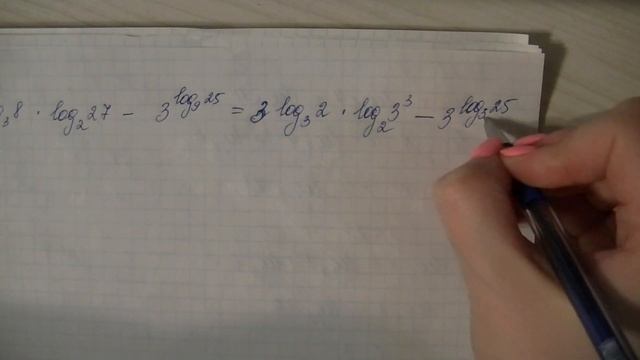 log₃8 · log₂27 − 3^log₉25 = 3 log₃2 · log₂3³ − 3^log₃25